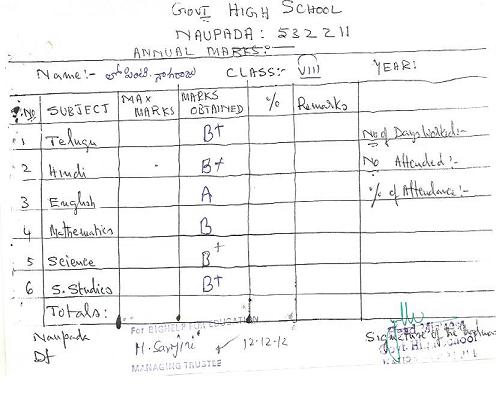 GOVT HIGH SCHOOL
NAUPADA: 532211
ANNUAL MARKS:-
Name:- CLASS:- VIII YEAR:
S.No SUBJECT MAX MARKS MARKS OBTAINED % Remarks
1 Telugu B+ No of Days Worked:-
2 Hindi B+ No Attended:-
3 English A % of Attendance:-
4 Mathematics B
5 Science B+
6 S. Studies B+
Totals:
Naupada For BIGHELP FOR EDUCATION Signature of the
Dt M. Sarojini 12-12-12
MANAGING TRUSTEE